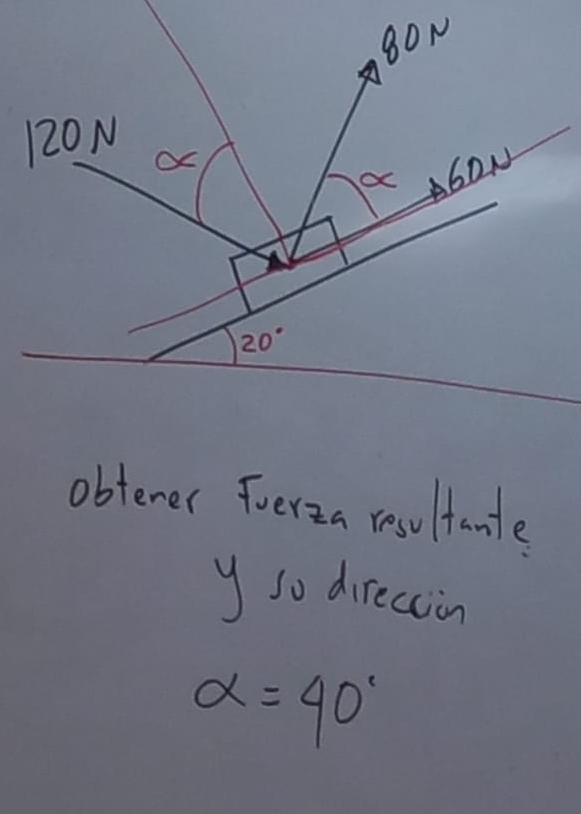 80N
120N
α
α
60N
20°
Obtener Fuerza resultante
y su dirección
α = 40°